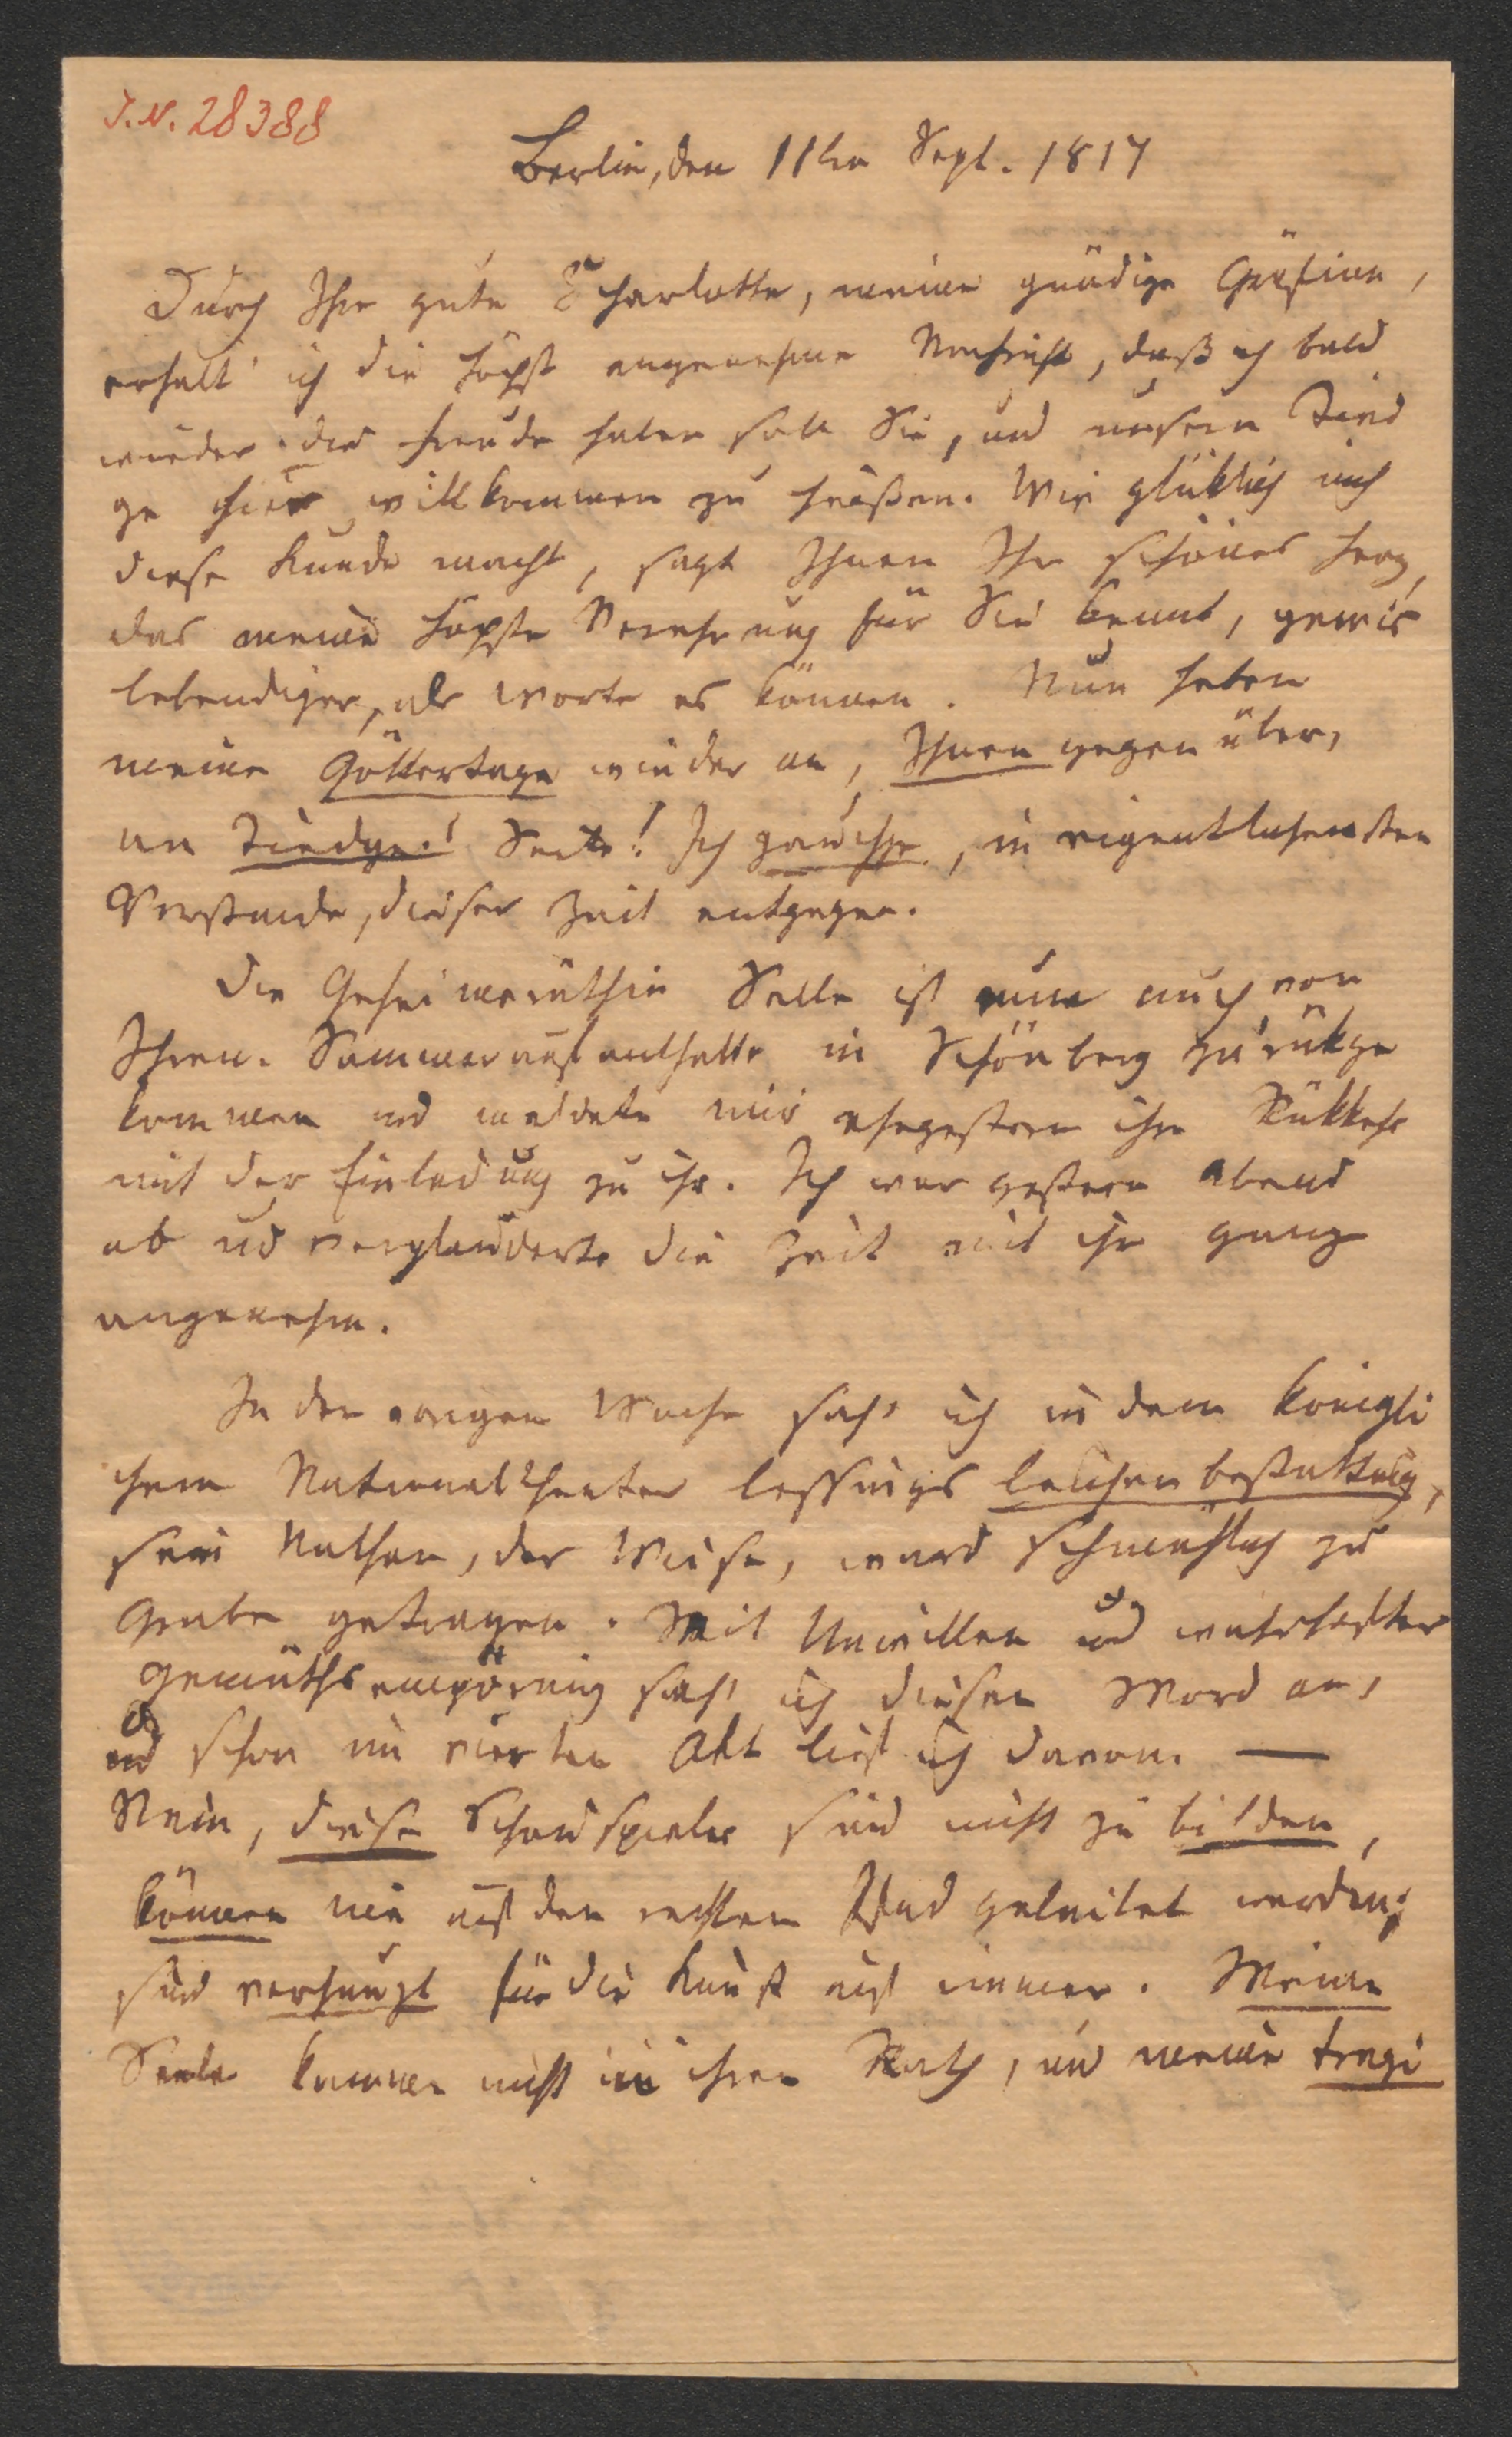 J.N. 28388
Berlin, den 11ten Sept. 1817
Durch Ihre gute Charlotte, meine gnädige Gräfinn,
erhalt' ich die höchst angenehme Nachricht, daß ich bald
wieder die Freude haben soll Sie, und unsern Tied
ge hier willkommen zu heißen. Wie glüklich mich
diese Kunde macht, sagt Ihnen Ihr schönes Herz,
das meine höchste Verehrung für Sie kennt, gewis
lebendiger, als Worte es können. Nun heben
meine Göttertage wieder an, Ihnen gegenüber,
an Tiedge's Seite! Ich jauchze, in eigentlichsten
Verstande, dieser Zeit entgegen.
Die Geheimeräthin Selle ist nun auch von
Ihrem Sommeraufenthalte in Schönberg zurükge
kommen und meldete mir ehegestern ihre Rükkehr
mit der Einladung zu ihr. Ich war gestern Abend
ab und verplauderte die Zeit mit ihr ganz
angenehm.
In der vorigen Woche sah' ich in dem Königli
chem Nationaltheater Lessings Leichenbestattung,
sein Nathan, der Weise, ward schmählich zu
Grabe getragen. Mit Unwillen und wahrhafter
Gemüthsempörung sah' ich diesen Mord an,
und schon im vierten Akt lief ich davon. —
Nein, diese Schauspieler sind nicht zu bilden,
können nie auf den rechten Pfad geleitet werden;
sind verhunzt für die Kunst auf immer. Meine
Seele komme nicht in ihren Rath, und meine tragi